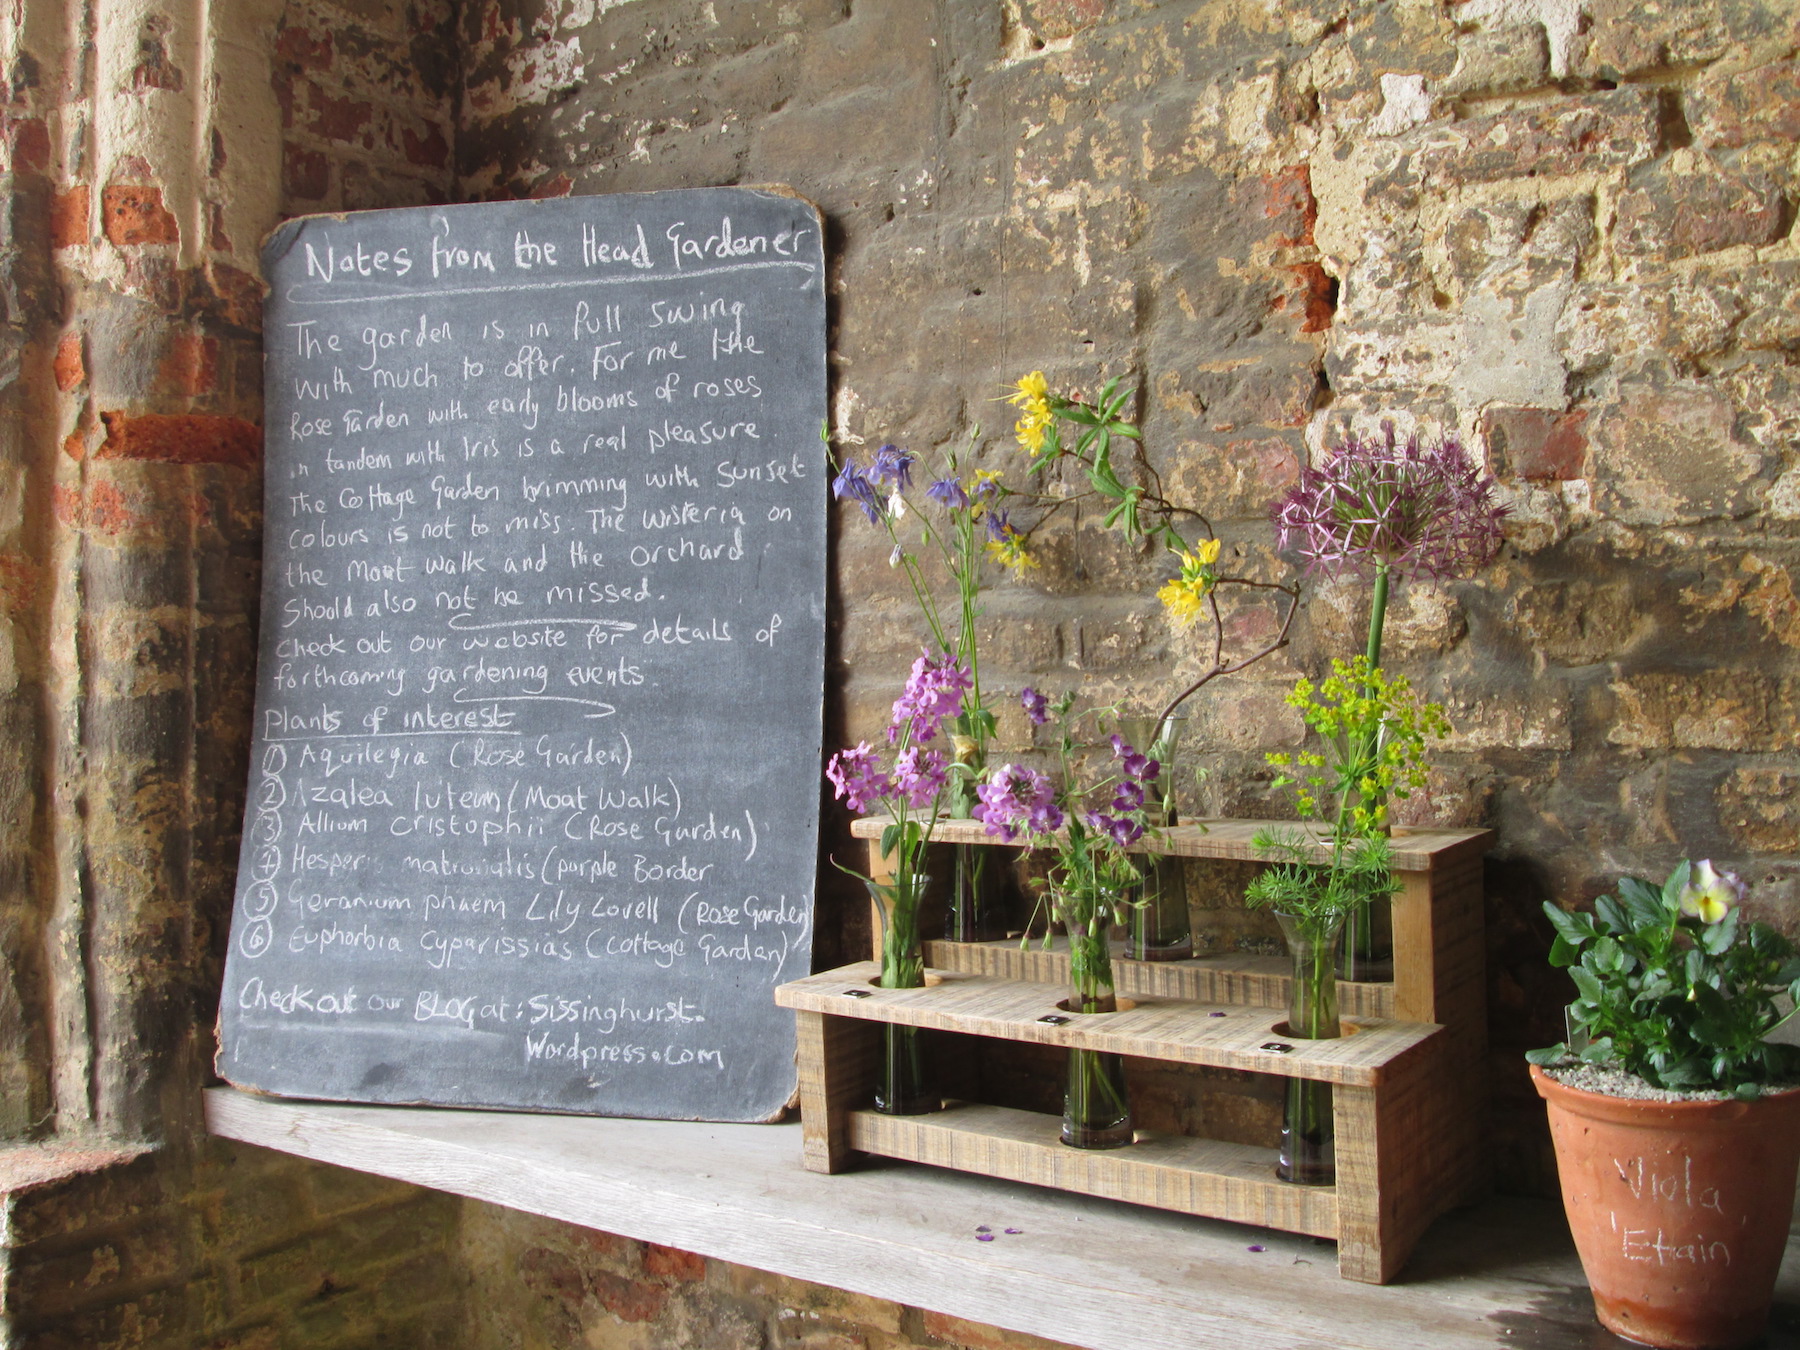 Notes from the Head Gardener
The garden is in full swing
with much to offer. For me the
Rose Garden with early blooms of roses
in tandem with Iris is a real pleasure.
The Cottage Garden brimming with sunset
colours is not to miss. The wisteria on
the Moat Walk and the Orchard
should also not be missed.
Check out our website for details of
forthcoming gardening events.
Plants of interest
① Aquilegia (Rose Garden)
② Azalea luteum (Moat Walk)
③ Allium cristophii (Rose Garden)
④ Hesperis matronalis (purple Border
⑤ Geranium phaem Lily Lovell (Rose Garden)
⑥ Euphorbia cyparissias (Cottage Garden)
Check out our BLOG at: Sissinghurst.
Wordpress.com
Viola
'Etain'